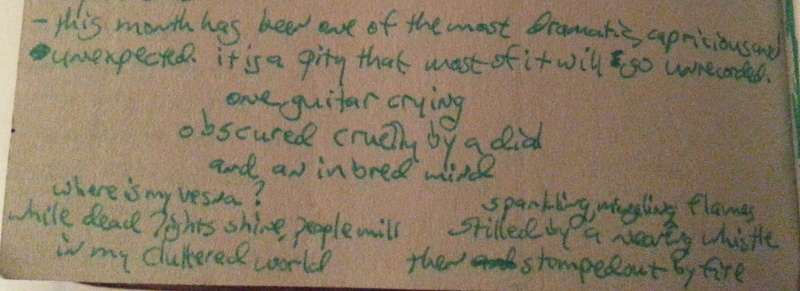 - this month has been one of the most dramatic, capricious and
unexpected. it is a pity that most of it will go unrecorded.
one guitar crying
obscured cruelly by a did
and an inbred mind
where is my vesna?
while dead lights shine, people mill
in my cluttered world
sparkling, wiggling flames
stilled by a nearby whistle
then stomped out by fire